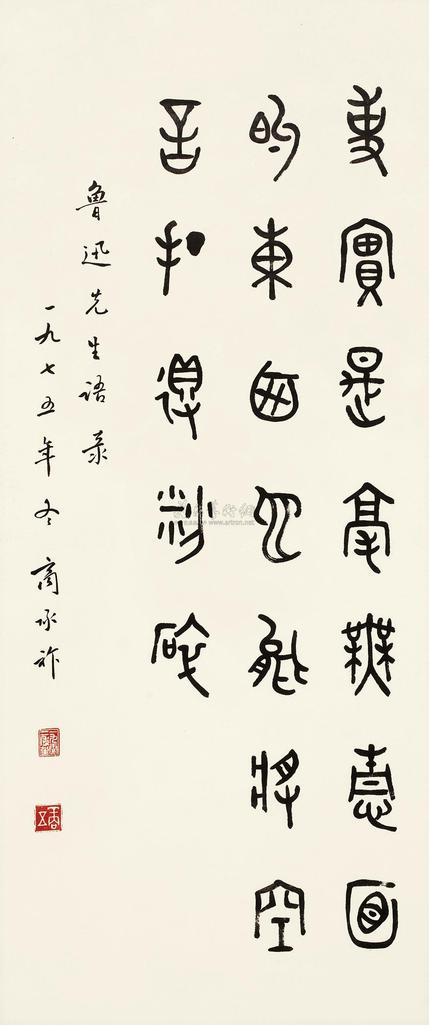 事實是毫無情面
的東西它能將空
言打得粉碎
魯迅先生語录
一九七五年冬 商承祚